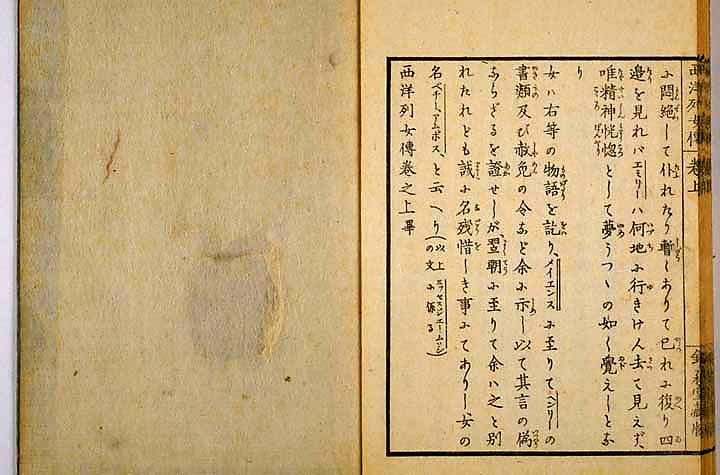 西洋列女傳 卷上
に悶絶して仆れたり暫しありて已れに復り四
邊を見れバエミリーハ何地に行きけん去て見えず
唯精神恍惚として夢うつゝの如く覺えしとな
り
女ハ右等の物語を訖り、メイエンスに至りてヘンリーの
書類及び赦免の令など余に示し以て其言の僞
ならざるを證せしが、翌朝に至りて余ハ之と別
れたれども誠に名残惜しき事にてありし女の
名ベチー、アムボス、と云へり(以上の文ミッセスジエームソンに係る)
西洋列女傳卷之上畢